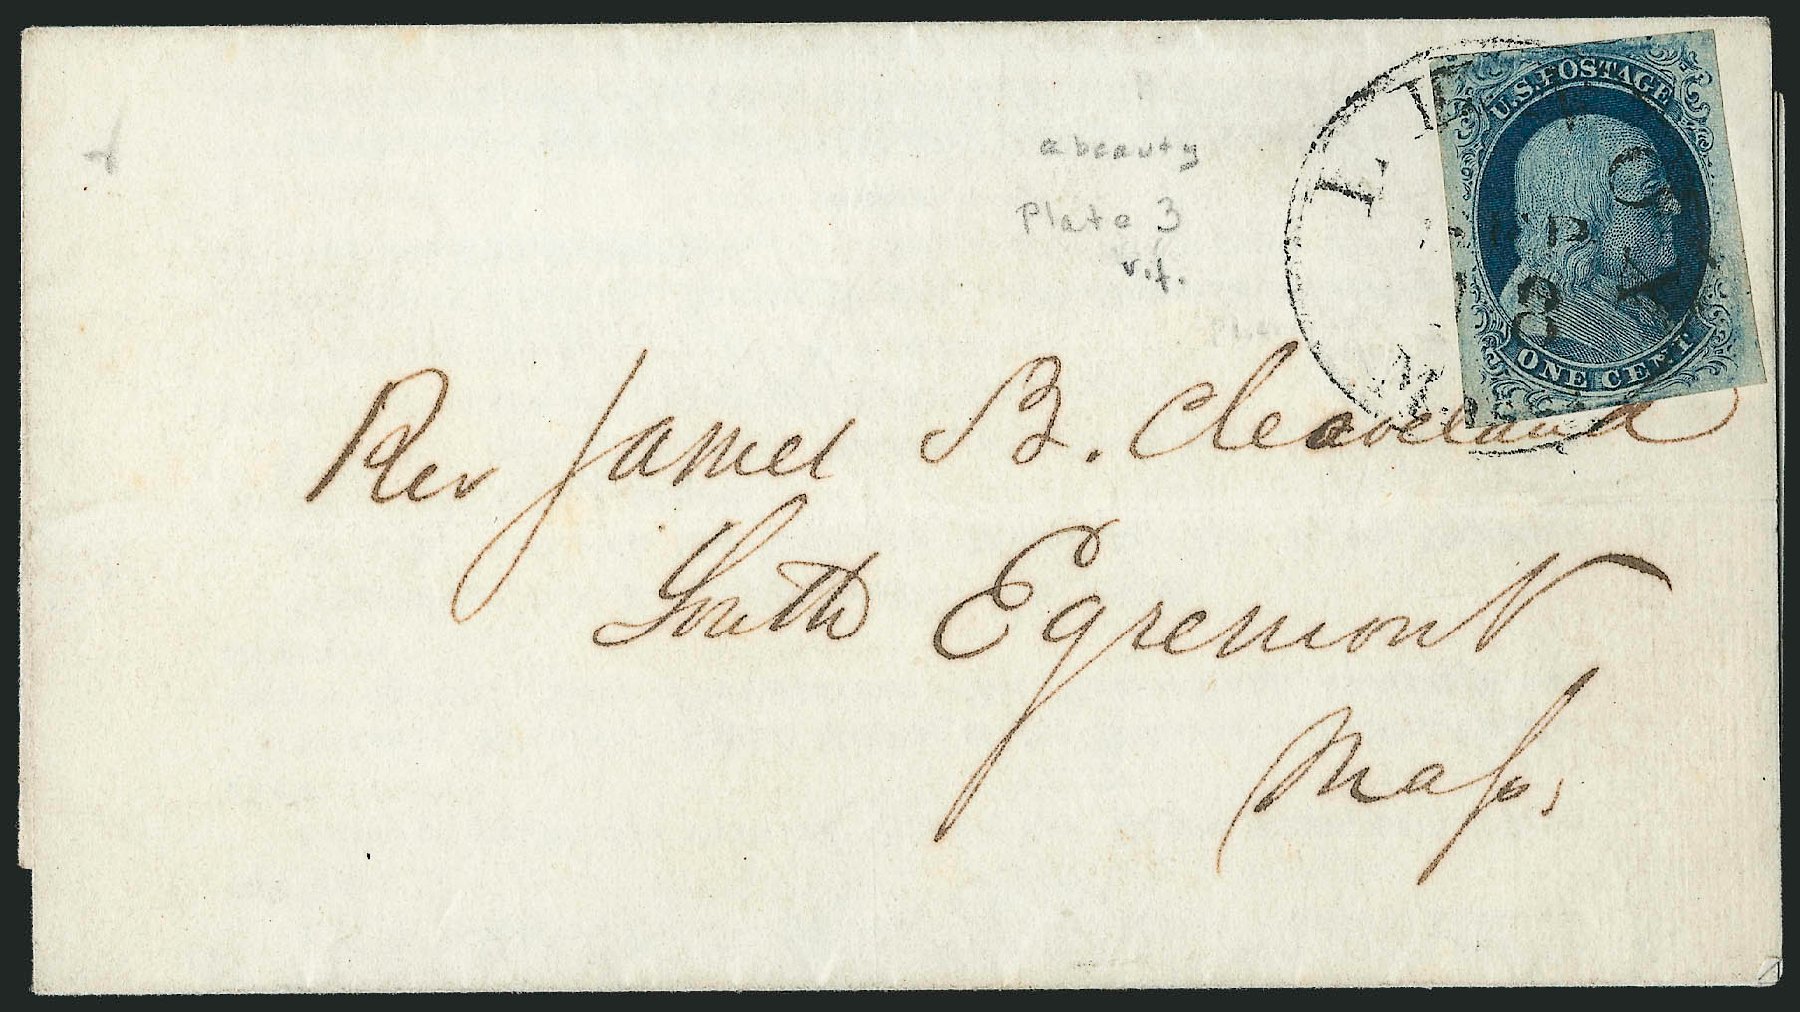 U.S. POSTAGE
ONE CENT
a beauty
Plate 3
v.f.
Rev James B. Cleaveland
South Egremont
Mass,